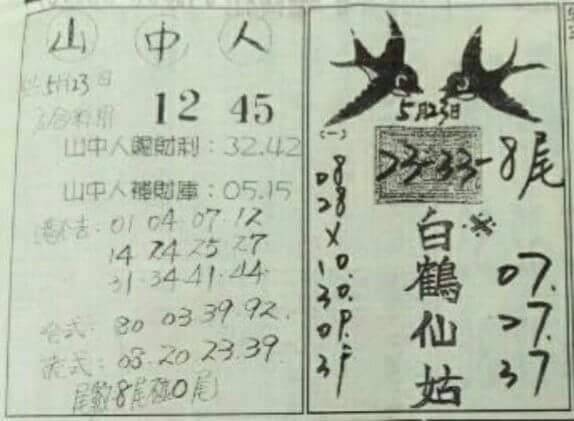 山中人
5月23日
12 45
山中人賜財利：32.42
山中人補財庫：05.15
01 04 07 12
14 24 25 27
31.34.41.44.
合式：80 03 39.92.
流式：08.20 23.39.
尾數8尾配0尾
5月23日
(一)
23-33-8尾
08
28
X
10.
30.
09.
39
白鶴仙姑
07.
27.
37